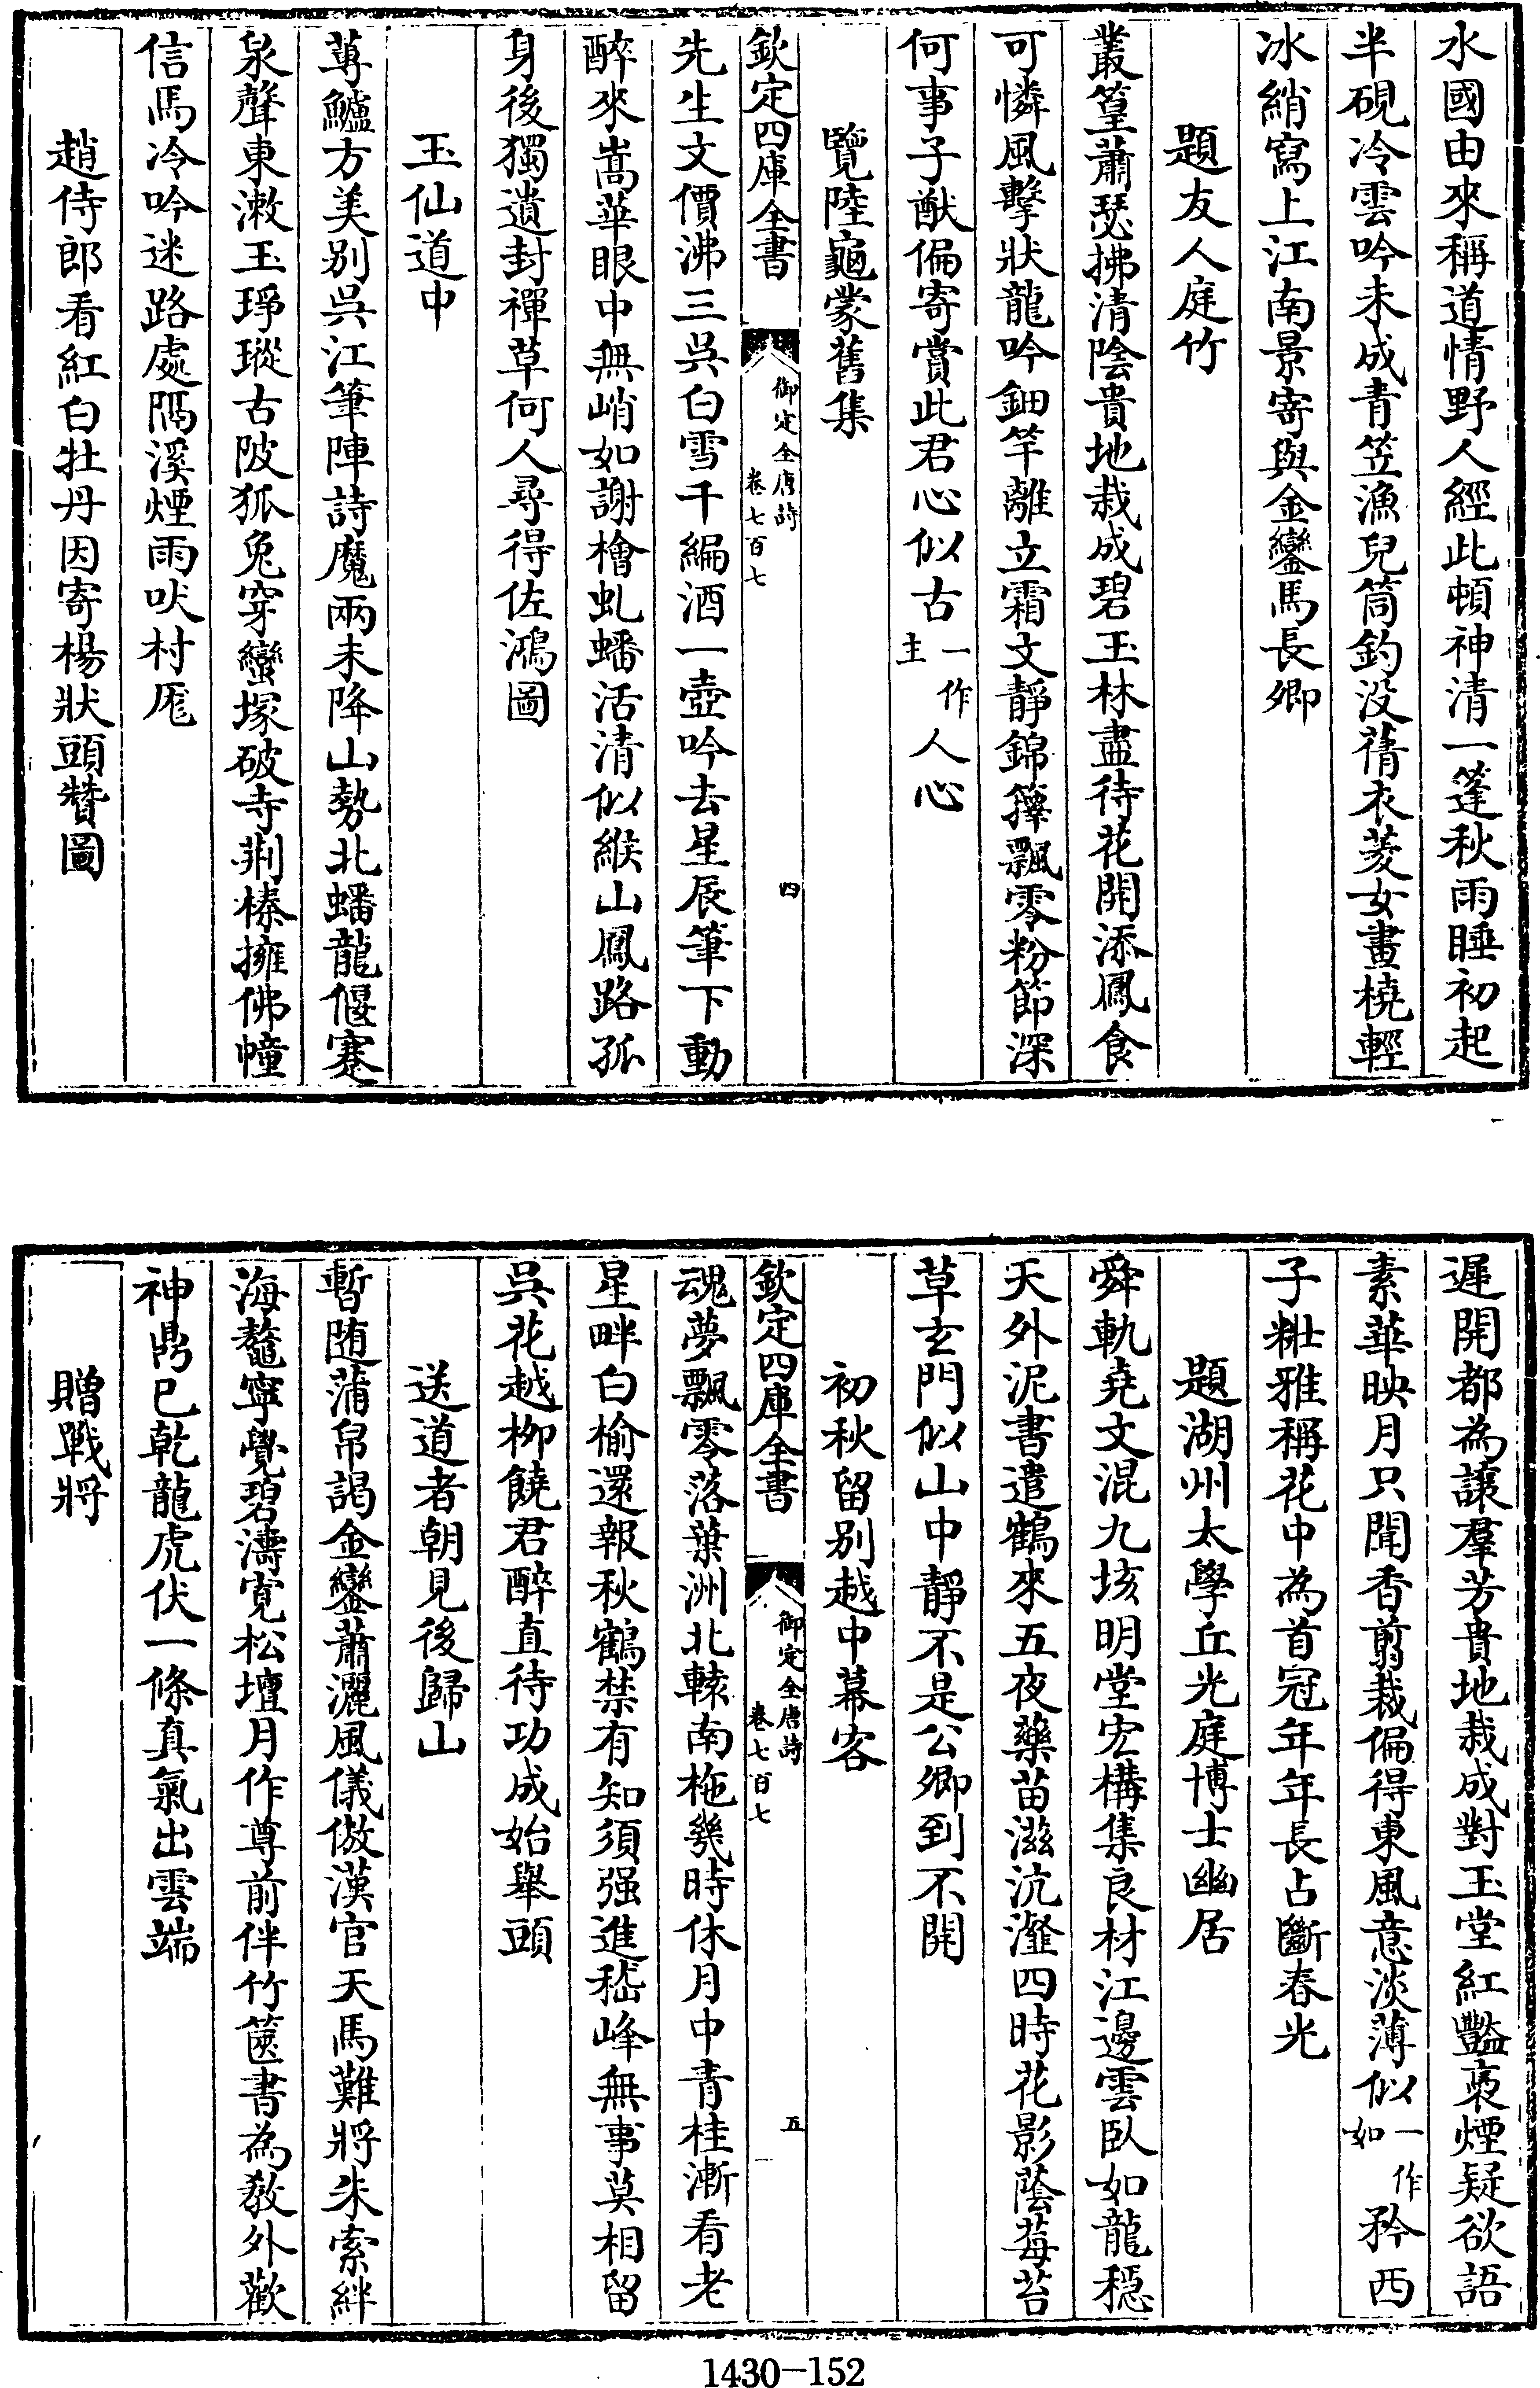 水國由來稱道情野人經此頓神清一篷秋雨睡初起
半硯冷雲吟未成青笠漁兒筒釣没蒨衣菱女畫橈輕
冰綃寫上江南景寄與金鑾馬長卿
題友人庭竹
叢篁蕭瑟拂清陰貴地栽成碧玉林盡待花開添鳳食
可憐風擊狀龍吟鈿竿離立霜文靜錦籜飄零粉節深
何事子猷偏寄賞此君心似古一作主人心
覽陸龜蒙舊集
欽定四庫全書 御定全唐詩卷七百七 四
先生文價沸三吳白雪千編酒一壺吟去星辰筆下動
醉來嵩華眼中無峭如謝檜虬蟠活清似緱山鳳路孤
身後獨遺封禪草何人尋得佐鴻圖
玉仙道中
蓴鱸方美别吳江筆陣詩魔兩未降山勢北蟠龍偃蹇
泉聲東漱玉琤瑽古陂狐兔穿蠻塚破寺荆榛擁佛幢
信馬冷吟迷路處隔溪煙雨吠村尨
趙侍郎看紅白牡丹因寄楊狀頭贊圖
遲開都為讓羣芳貴地栽成對玉堂紅豔裛煙疑欲語
素華映月只聞香剪裁偏得東風意淡薄似一作如矜西
子粧雅稱花中為首冠年年長占斷春光
題湖州太學丘光庭博士幽居
舜軌堯文混九垓明堂宏構集良材江邊雲臥如龍穩
天外泥書遣鶴來五夜藥苗滋沆瀣四時花影蔭莓苔
草玄門似山中靜不是公卿到不開
初秋留别越中幕客
欽定四庫全書 御定全唐詩卷七百七 五
魂夢飄零落葉洲北轅南柂幾時休月中青桂漸看老
星畔白榆還報秋鶴禁有知須强進嵇峰無事莫相留
吳花越柳饒君醉直待功成始舉頭
送道者朝見後歸山
暫随蒲帛謁金鑾蕭灑風儀傲漢官天馬難將朱索絆
海鼇寧覺碧濤寛松壇月作尊前伴竹篋書為教外歡
神鼎已乾龍虎伏一條真氣出雲端
贈戰將
1430－152